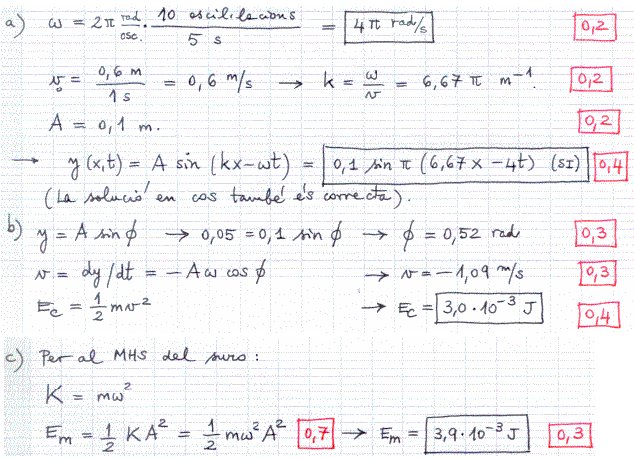 a) ω = 2π rad/osc. · 10 oscil·lacions / 5 s = 4π rad/s 0,2
v₀ = 0,6 m / 1 s = 0,6 m/s → k = ω/v = 6,67 π m⁻¹. 0,2
A = 0,1 m. 0,2
→ y(x,t) = A sin (kx-ωt) = 0,1 sin π (6,67x - 4t) (SI) 0,4
(La solució en cos també és correcta).
b) y = A sin ϕ → 0,05 = 0,1 sin ϕ → ϕ = 0,52 rad 0,3
v = dy/dt = -Aω cos ϕ → v = -1,09 m/s 0,3
Ec = 1/2 mv² → Ec = 3,0·10⁻³ J 0,4
c) Per al MHS del suro:
K = mω²
Em = 1/2 KA² = 1/2 mω²A² 0,7 → Em = 3,9·10⁻³ J 0,3